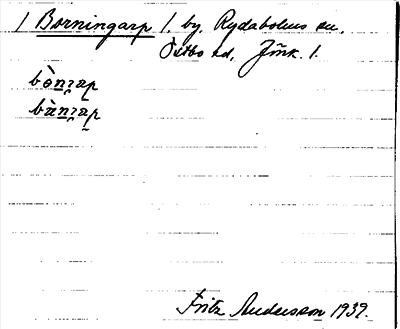 1 Borningarp 1. by, Rydaholms sn.
Östbo hd, Jönk. l.
bòn̲ɿap
bàn̲ɿap
Fritz Andersson 1939.